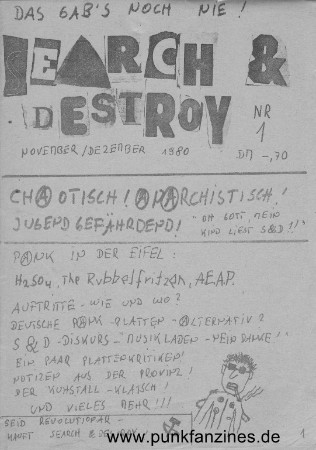 DAS GAB'S NOCH NIE!
SEARCH &
DESTROY
NR
1
NOVEMBER/DEZEMBER 1980
DM -,70
CHAOTISCH! ANARCHISTISCH!
JUGENDGEFÄHRDEND!
"OH GOTT, MEIN
KIND LIEST S&D!!"
PUNK IN DER EIFEL:
H2SO4, The Rubbelfritzen, AEAP.
AUFTRITTE - WIE UND WO?
DEUTSCHE PUNK-PLATTEN - ALTERNATIV?
S&D-DISKURS - "MUSIKLADEN - NEIN DANKE!"
EIN PAAR PLATTENKRITIKEN!
NOTIZEN AUS DER PROVINZ!
DER KUHSTALL-KLATSCH!
UND VIELES MEHR!!!
SEID REVOLUTIONÄR -
KAUFT SEARCH & DESTROY!
1
www.punkfanzines.de